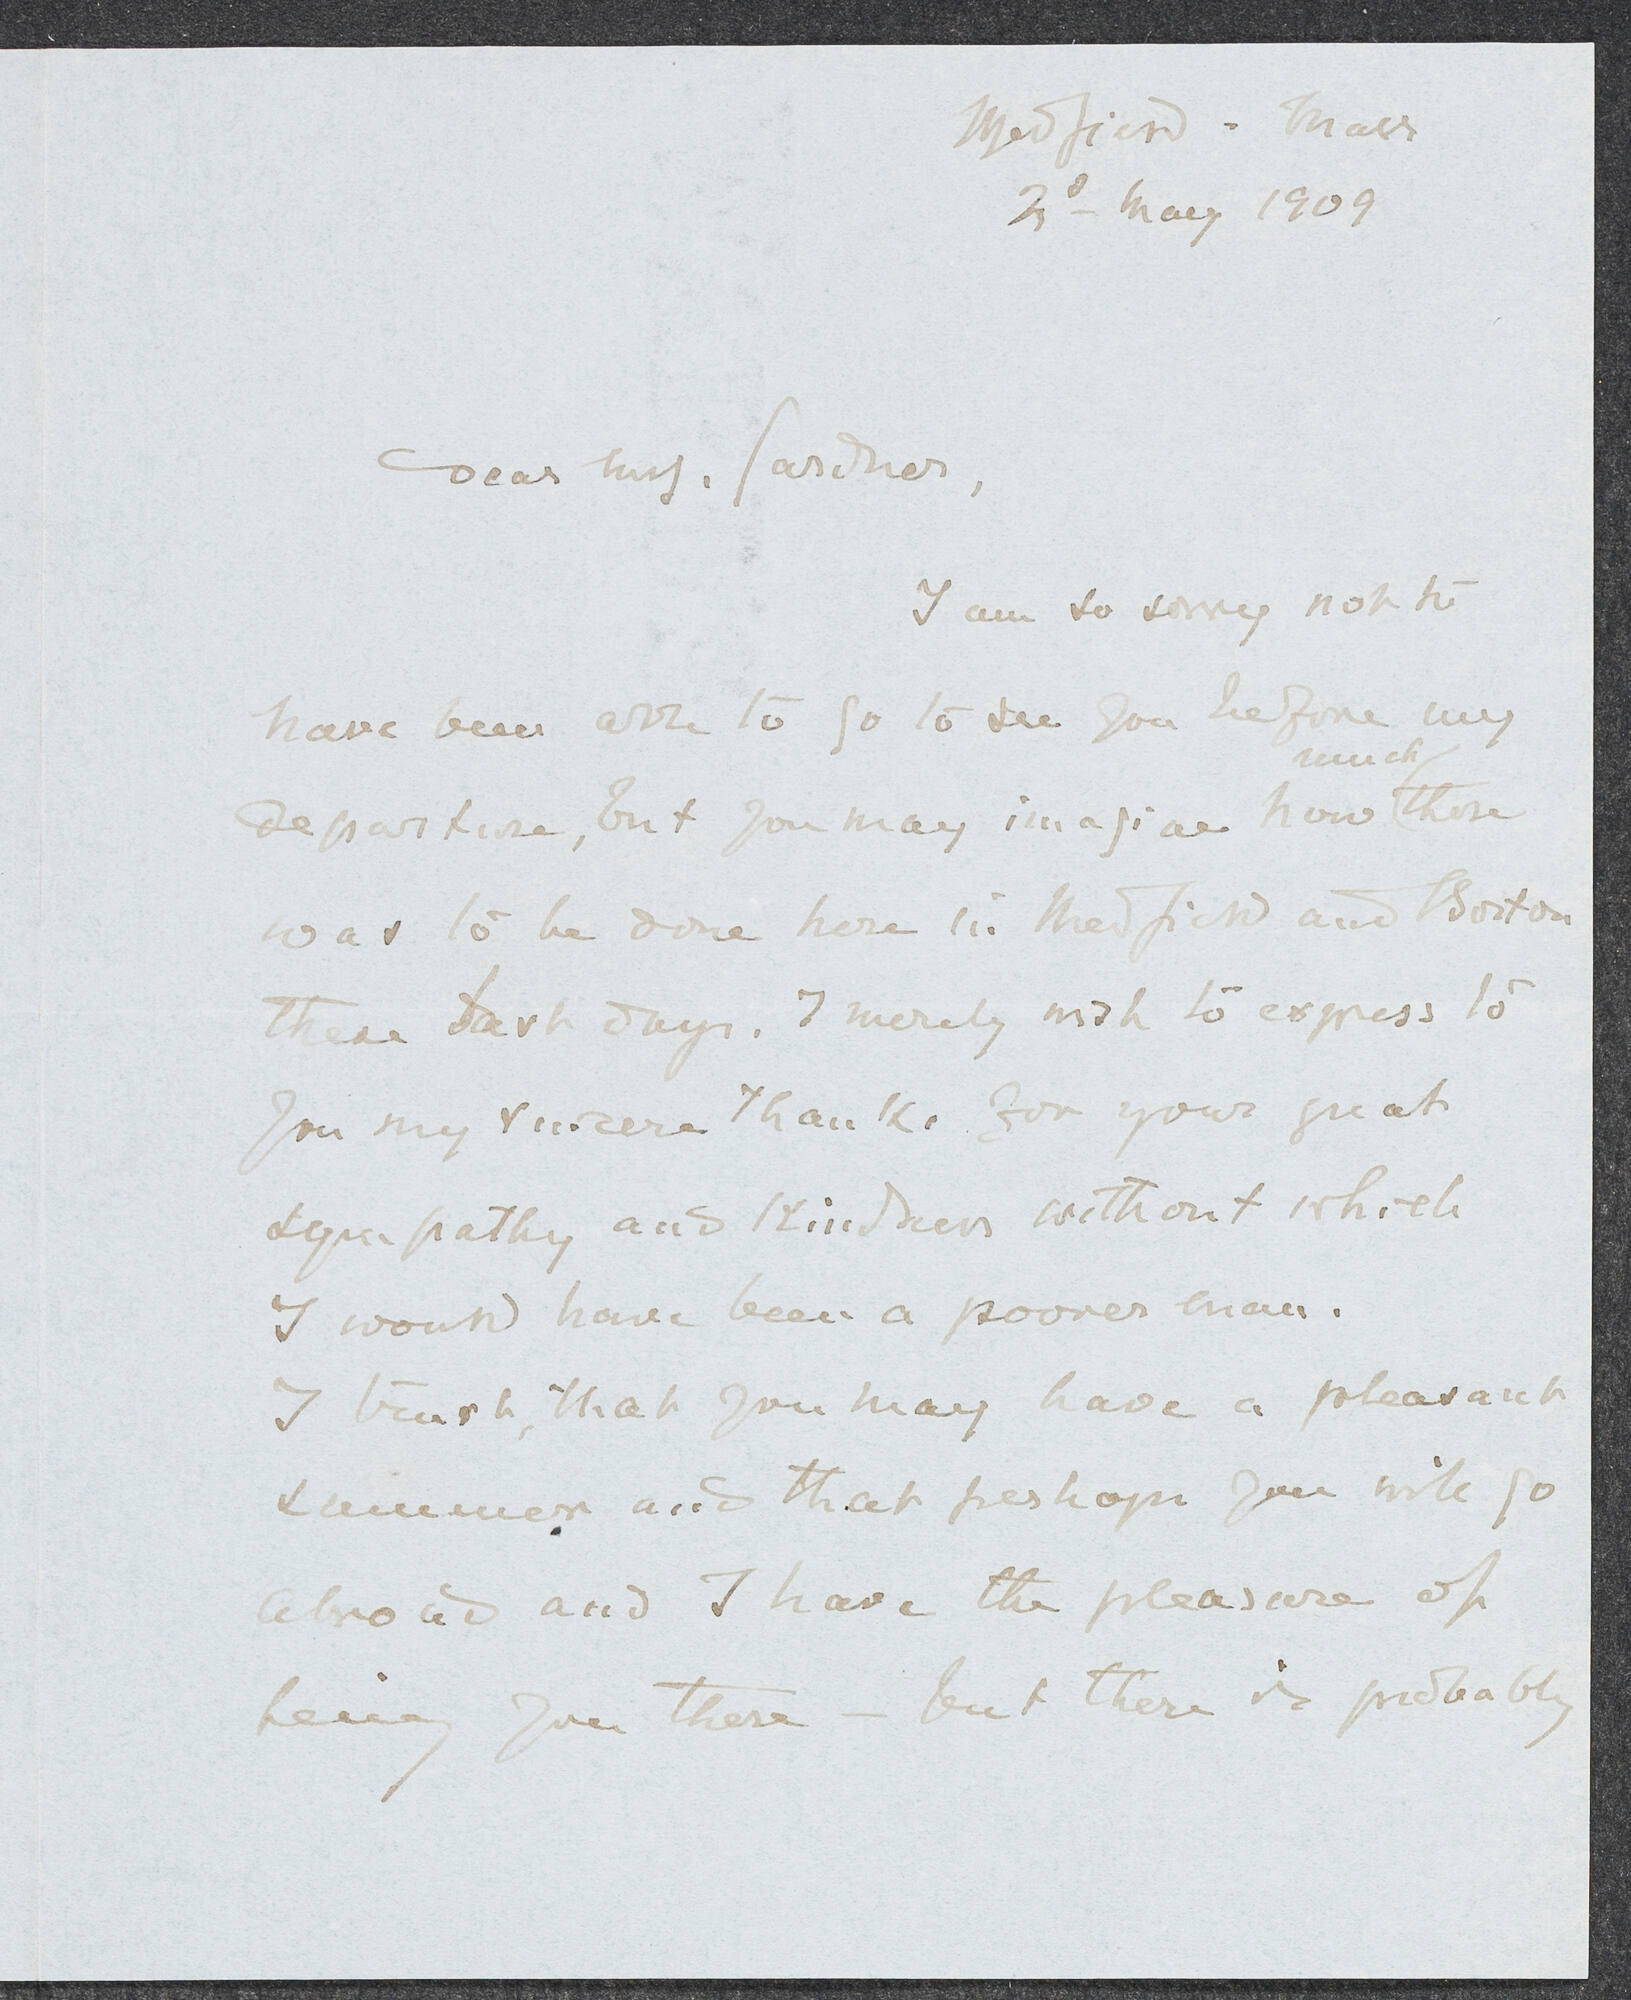 Medfield - Mass
2d - May 1909
Dear Mrs. Gardner,
I am so sorry not to
have been able to go to see you before my
much
departure, but you may imagine how there
was to be done here in Medfield and Boston
these last days. I merely wish to express to
you my sincere thanks for your great
sympathy and kindness without which
I would have been a poorer man.
I trust, that you may have a pleasant
summer and that perhaps you will go
abroad and I have the pleasure of
being you there - but there is probably